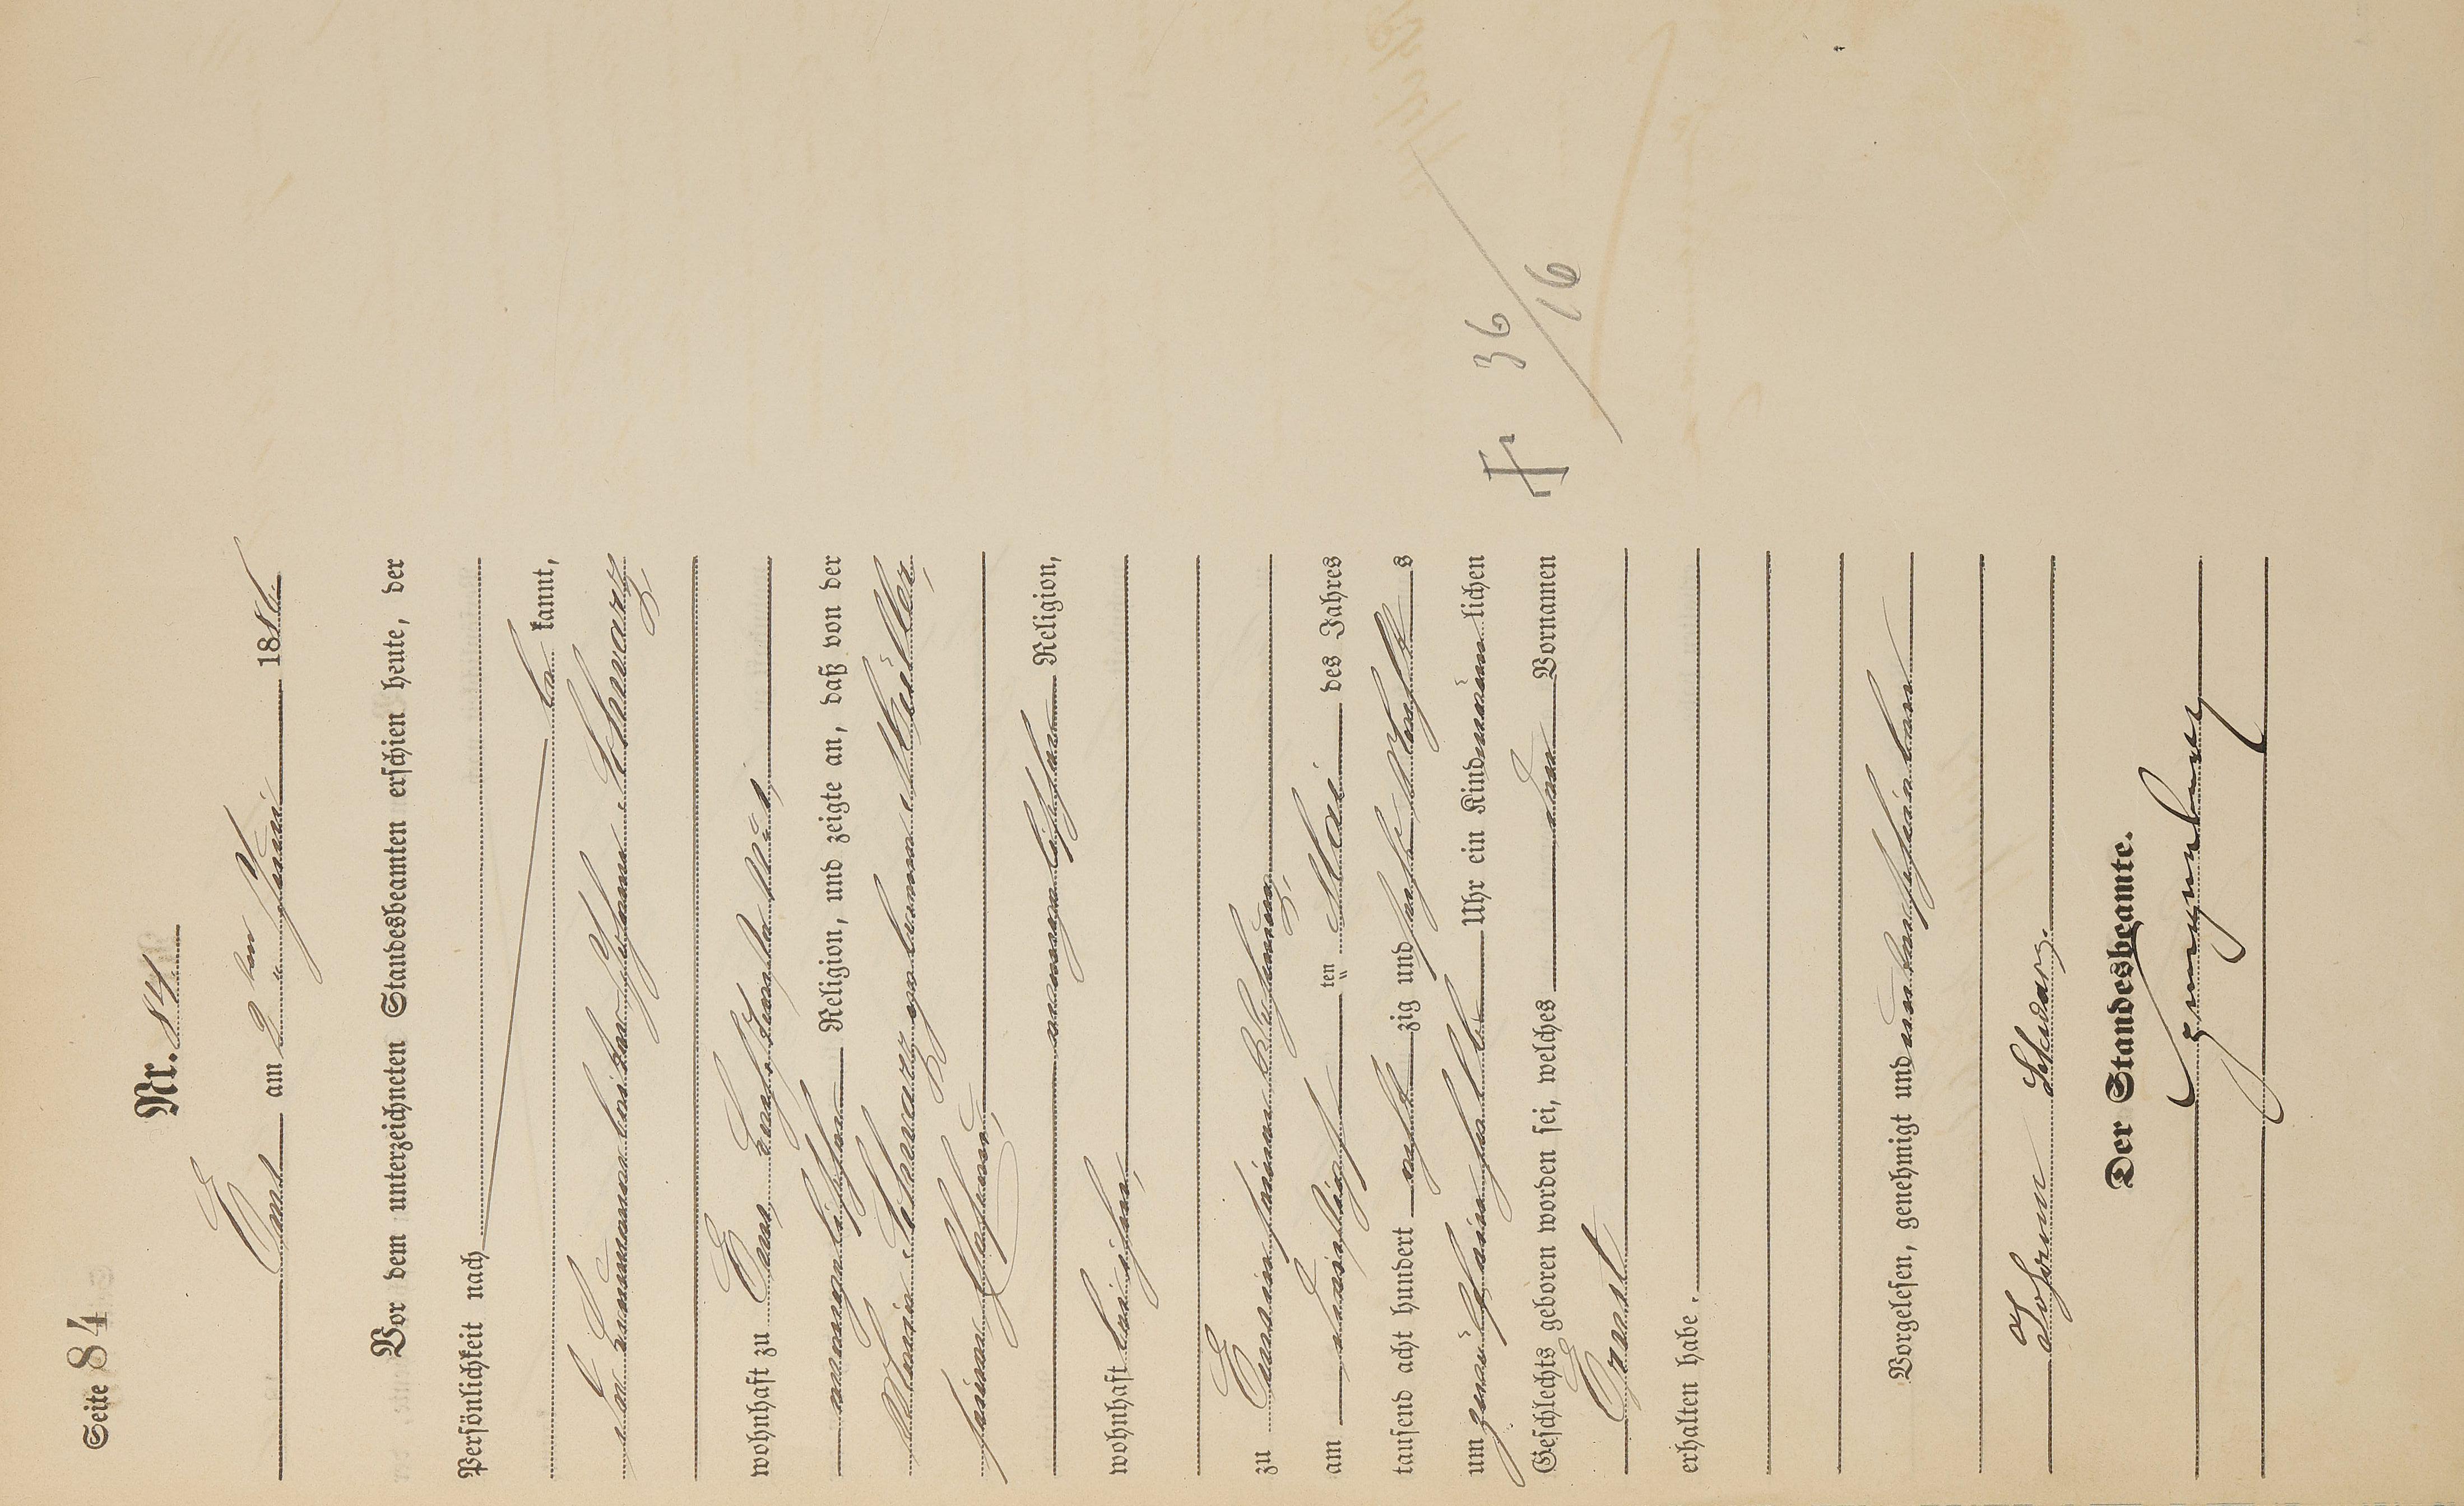 Seite 84
Nr. 84.
Ems am 2 ten Juni 1886
Vor dem unterzeichneten Standesbeamten erschien heute, der
Persönlichkeit nach
be kannt,
der Johann Schwarz
wohnhaft zu Ems,
evangelischer Religion, und zeigte an, daß von der
Maria Schwarz geborenen Müller,
seiner Ehefrau,
evangelischer Religion,
wohnhaft bei ihm,
zu Ems in seiner Behausung,
am dreißigsten ten Mai des Jahres
tausend acht hundert acht zig und sechs s
um Uhr ein Kind männ lichen
Geschlechts geboren worden sei, welches den Vornamen
Ernst
erhalten habe.
Vorgelesen, genehmigt und unterschrieben
Johann Schwarz.
Der Standesbeamte.
36/16